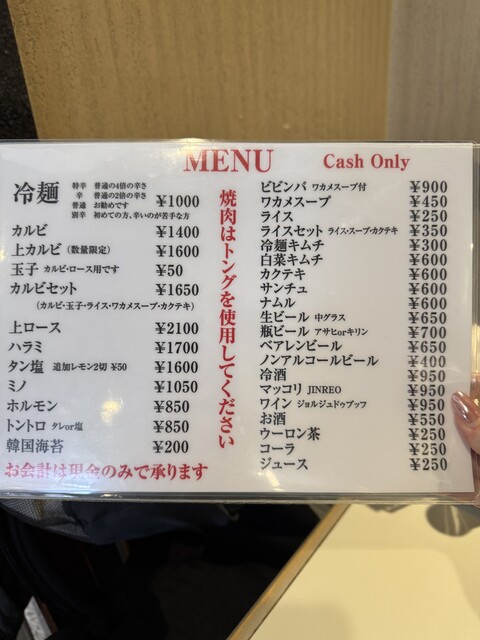 MENU Cash Only
冷麺 ¥1000
特辛 普通の4倍の辛さ
辛 普通の2倍の辛さ
普通 お勧めです
別辛 初めての方、辛いのが苦手な方
カルビ ¥1400
上カルビ(数量限定) ¥1600
玉子 カルビ・ロース用です ¥50
カルビセット ¥1650
(カルビ・玉子・ライス・ワカメスープ・カクテキ)
上ロース ¥2100
ハラミ ¥1700
タン塩 追加レモン2切 ¥50 ¥1600
ミノ ¥1050
ホルモン ¥850
トントロ タレor塩 ¥850
韓国海苔 ¥200
お会計は現金のみで承ります
焼肉はトングを使用してください
ビビンバ ワカメスープ付 ¥900
ワカメスープ ¥450
ライス ¥250
ライスセット ライス・スープ・カクテキ ¥350
冷麺キムチ ¥300
白菜キムチ ¥600
カクテキ ¥600
サンチュ ¥600
ナムル ¥600
生ビール 中グラス ¥650
瓶ビール アサヒorキリン ¥700
ベアレンビール ¥650
ノンアルコールビール ¥400
冷酒 ¥950
マッコリ JINREO ¥950
ワイン ジョルジュドゥブッフ ¥950
お酒 ¥550
ウーロン茶 ¥250
コーラ ¥250
ジュース ¥250